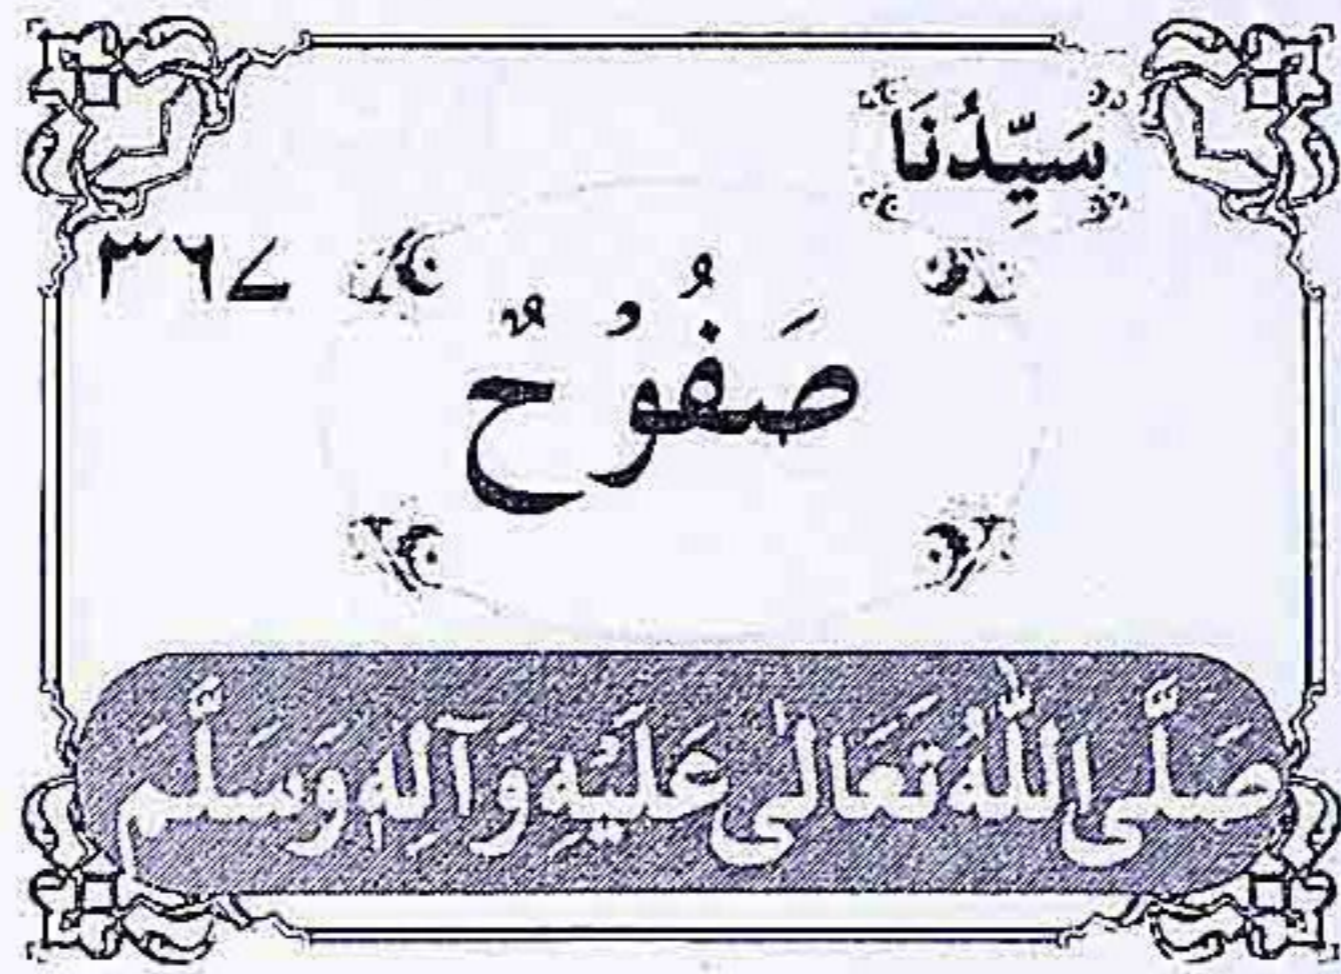 سَيِّدُنَا
٣٦٧
صَفُوُحٌ
صَلَّى اللّٰهُ تَعَالٰى عَلَيْهِ وَآلِهٖ وَسَلَّمَ